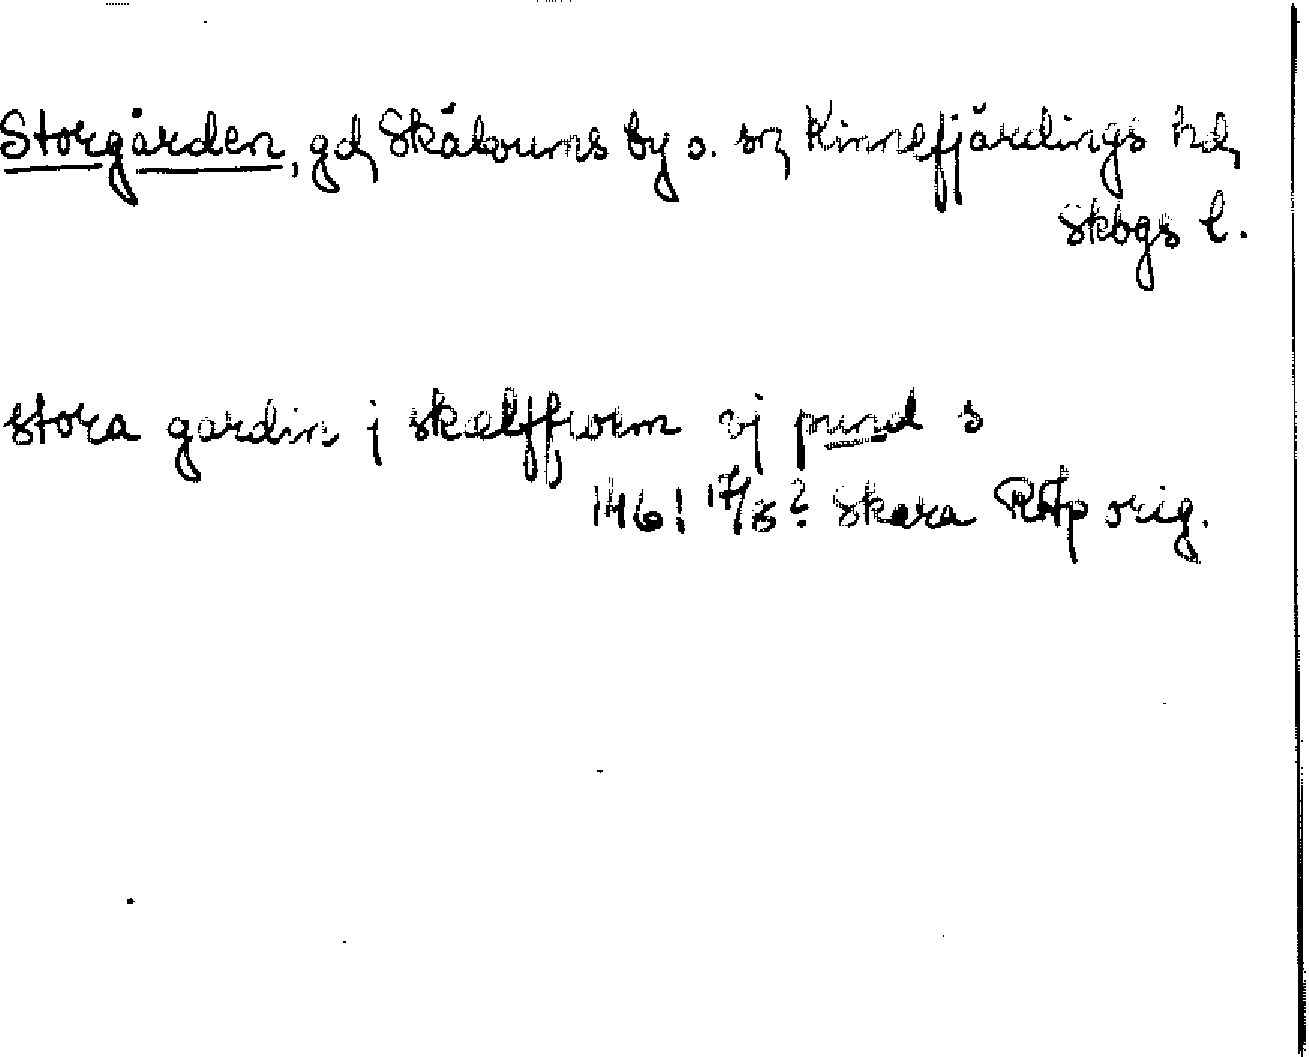 Storgården, gd, Skälvums by o. sn, Kinnefjärdings hd,
Skbgs l.
stora gardin j skælffwem vj pund s
146! 17/3? Skara RAp orig.